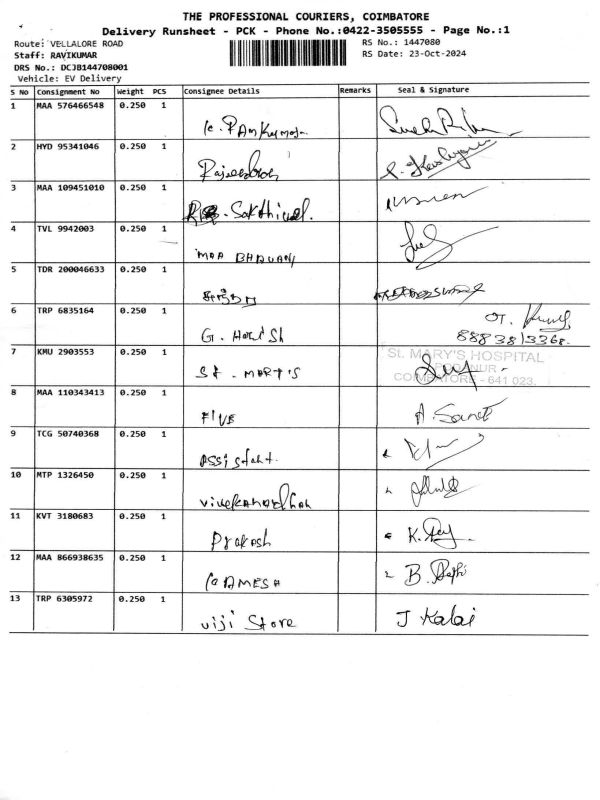 THE PROFESSIONAL COURIERS, COIMBATORE
Delivery Runsheet - PCK - Phone No.:0422-3505555 - Page No.:1
Route: VELLALORE ROAD RS No.: 1447080
Staff: RAVIKUMAR RS Date: 23-Oct-2024
DRS No.: DCJB144708001
Vehicle: EV Delivery
S No Consignment No Weight PCS Consignee Details Remarks Seal & Signature
1 MAA 576466548 0.250 1 K. RAMKumar
2 HYD 95341046 0.250 1
3 MAA 109451010 0.250 1 Sakthivel.
4 TVL 9942003 0.250 1 MAA BHAVANI
5 TDR 200046633 0.250 1
6 TRP 6835164 0.250 1 G. HariSh
8883813368.
7 KMU 2903553 0.250 1 St. MARY'S
St. MARY'S HOSPITAL
COIMBATORE - 641 023.
8 MAA 110343413 0.250 1 FIVE A. Sanet
9 TCG 50740368 0.250 1 ASSistant.
10 MTP 1326450 0.250 1 vivekanandhan
11 KVT 3180683 0.250 1 Prakash K. Ray
12 MAA 866938635 0.250 1 RAMESH B.
13 TRP 6305972 0.250 1 viji Store J Kalai